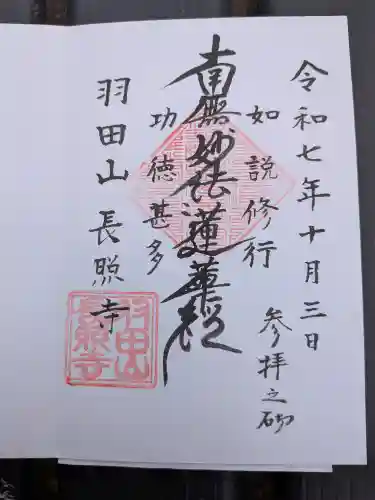 令和七年十月三日
参拝之砌
如説修行
南無妙法蓮華経
功徳甚多
羽田山 長照寺
羽田山長照寺